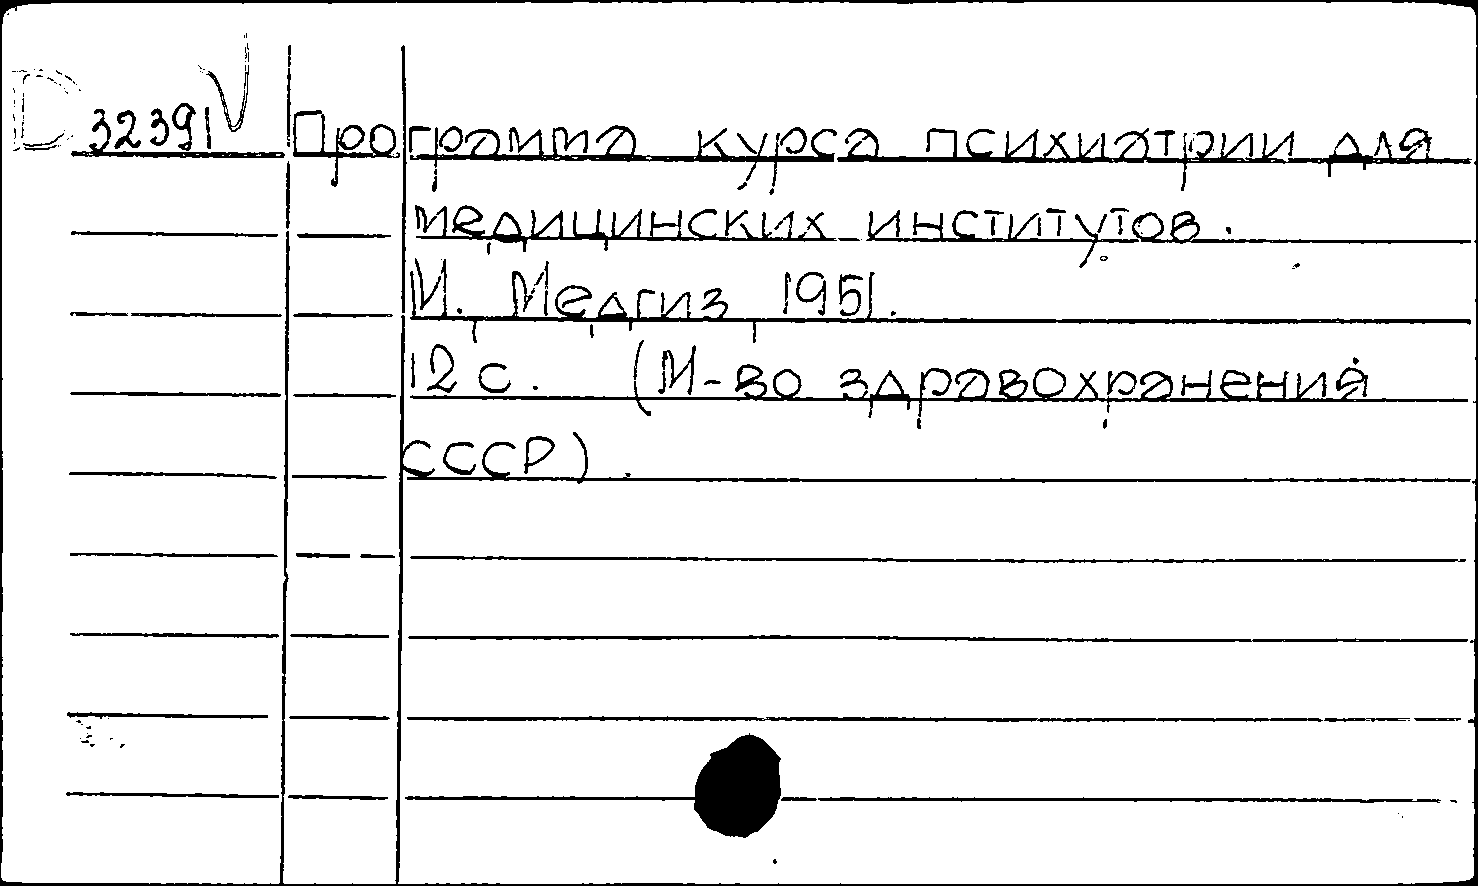 D 32391 V Программа курса психиатрии для
медицинских институтов.
М., Медгиз, 1951.
12 с. (М-во здравохранения
СССР).